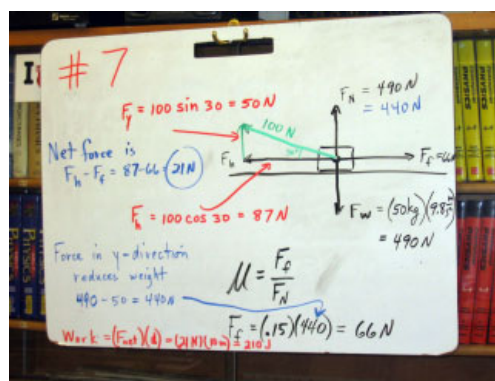 # 7
F_y = 100 sin 30 = 50 N
F_N = 490 N
= 440 N
100 N
30°
Net force is
F_h - F_f = 87-66 = 21 N
F_h
F_f = 66N
F_h = 100 cos 30 = 87 N
F_W = (50kg)(9.8
= 490 N
Force in y-direction
reduces weight
490 - 50 = 440 N
μ = F_f / F_N
F_f = (.15)(440) = 66 N
Work = (F_net)(d) = (21 N)(10 m) = 210 J
PHYSICS
PHYSICS
Physics